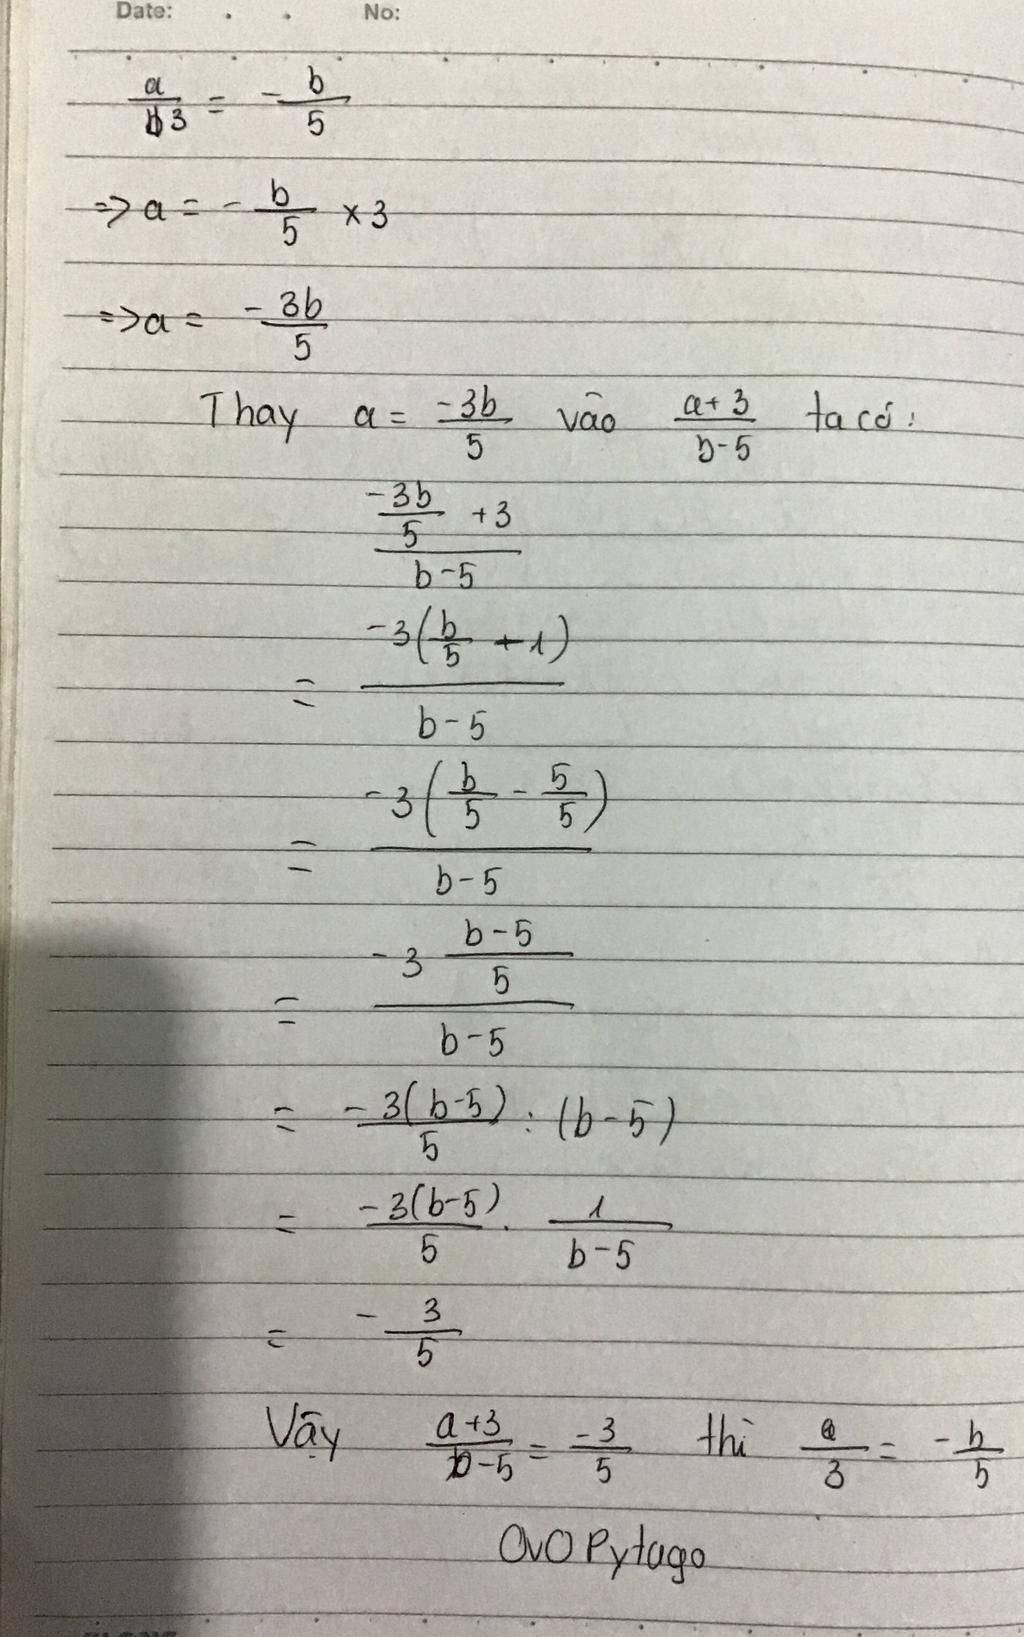 Date: . . No:
a/3 = -b/5
=> a = -b/5 × 3
=> a = -3b/5
Thay a = -3b/5 vào a+3/b-5 ta có:
(-3b/5 +3)/(b-5)
= -3(b/5 + 1)/(b-5)
= -3(b/5 - 5/5)/(b-5)
= -3 (b-5)/5/(b-5)
= -3(b-5)/5 : (b-5)
= -3(b-5)/5 . 1/(b-5)
= -3/5
Vậy a+3/b-5 = -3/5 thì a/3 = -b/5
OvO Pytago